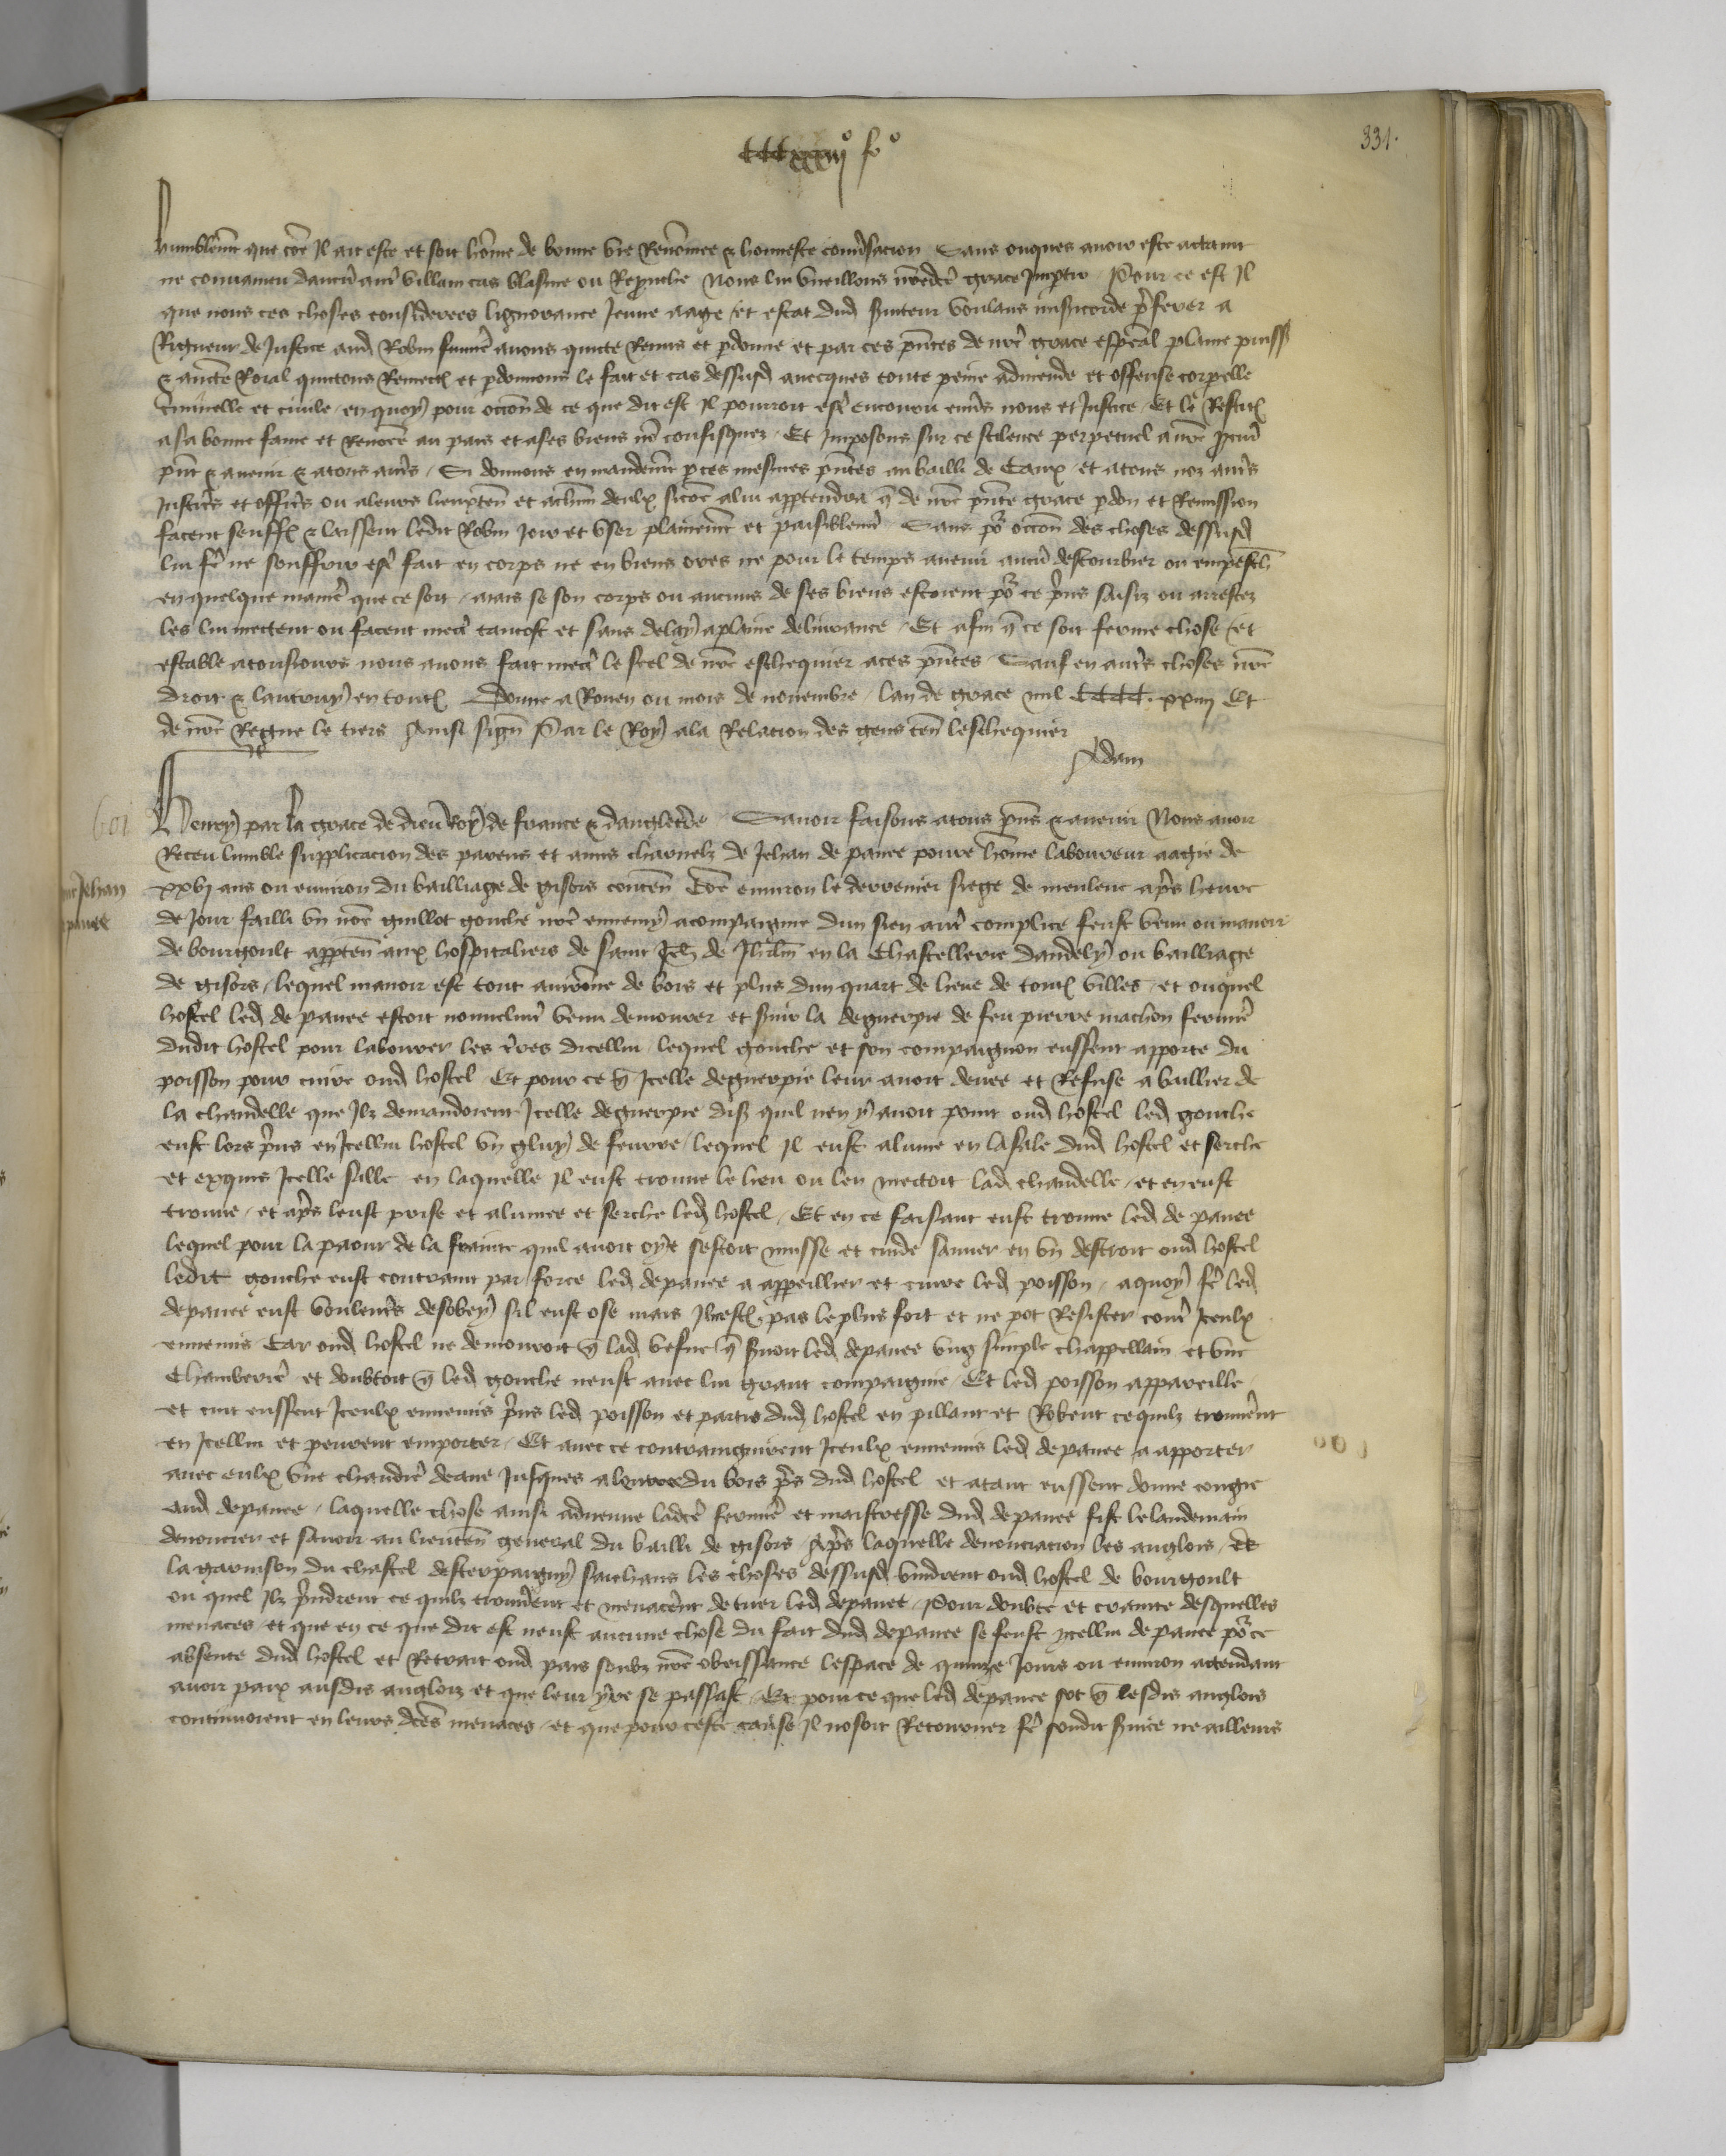 CCCxxxiiijº fº
331.
humblemt que cõe Il ait este et soit hõme de bonne vie Renõmee & honneste conũsacion Sans onques auoir este actaint
ne conuaincu daucũ autˀ villain cas blasme ou Reprouche Nous lui vueillons nredcẽ grace Impartir Pour ce est Il
que nous ces choses considerees lignorance Jeune aage et estat dud suiteur voulans misericorde pˀferer a
Rigueur de Justice aud Robin auons quicte Remis et pdonne et par ces pñtes de nrẽ grace espeal plaine puiss
& aucte Roial quictons Remect et pdonnons le fait et cas dessusd auecques toute peine admende et offense corpelle
criminelle et ciuile en quoy pour occon de ce que dit est Il pourroit estˀ encouru enũs nous et Justice Et le Restit
a sa bonne fame et Renõee au pais et a ses biens nõ confisquez Et Imposons sur ce scilence perpetuel a nrẽ procur
pñt & auenir & a tous autˀs Si donnons en mandemt p ces mesmes pñtes au bailli de Caux et a tous noz autˀs
Justicˀs et officˀs ou a leurs lieuxten et a chũn deulx sicõe a lui apptendra q de nrẽ pñte grace pdon et Remission
facent seuffr & laissent ledit Robin Joir et vser plainemt et paisiblemt Sans poˀ occon des choses dessusd
lui fẽ ne souffrir estˀ fait en corps ne en biens ores ne pour le temps auenir aucũ destourbier ou empesch
en quelque manierˀ que ce soit mais se son corps ou aucuns de ses biens estoient poˀ ce pˀns saisiz ou arrestez
les lui mectent ou facent mectˀ tantost et sans delay a plaine deliurance Et afin q ce soit ferme chose et
estable a tousiours nous auons fait mectˀ le scel de nrẽ eschequier a ces pñtes Sauf en autˀs choses nrẽ
droit & lautruy en tout Donne a Rouen ou mois de nouembre lan de grace mil CCCC xxiiij Et
de nrẽ Regne le tiers Ainsi sign Par le Roy a la Relacion des gens ten leschequier
Adam
601
Henry par la grace de dieu Roy de france & dangleterre Sauoir faisons a tous pñs & auenir Nous auoir
Receu lumble supplicacion des parens et amis charnelz de Jehan de panee poure hõme laboureur aagie de
xxvj ans ou enuiron du bailliage de gisors conten Cõe enuiron le derrenier siege de meulent apˀs heure
de Jour failli vn nõe guillot gouche nrẽ ennemy acompaigne dun sien autˀ complice feust venu ou manoir
de bourgoult apparten aux hospitaliers de saint Jeh de Jhrlm en la Chastellerie dandely ou bailliage
de gisors lequel manoir est tout auirõne de bois et plus dun quart de lieue de tout villes et ouquel
hostel led de panee estoit nouuelmt venu demourer et suir la deguerpie de feu pierre machon fermiẽ
dudit hostel pour labourer les tˀres dicellui lequel gouche et son compaignon eussent apporte du
poisson pour cuire oud hostel Et pour ce q Icelle deguerpie leur auoit denee et Refuse a baillier de
la chandelle que Ilz demandoient Icelle deguerpie dis quil nen y auoit point oud hostel led gouche
eust lors pˀns en Icellui hostel vn gluy de feurre lequel Il eust alume en la sale dud hostel et serche
et exquis Icelle salle en laquelle Il eust trouue le lieu ou len mectoit lad chandelle et en eust
trouue et apˀs leust prise et alumee et serche led hostel Et en ce faisant eust trouue led de panee
lequel pour la paour de la frainte quil auoit oye sestoit musse et cuide sauuer en vn destroit oud hostel
ledit gouche eust contraint par force led de panee a appeillier et cuire led poisson a quoy fẽ led
de panee eust voulentˀs desobey sil eust ose mais Il nest pas le plus fort et ne pot Resister contˀ Iceulx
ennemis Car oud hostel ne demouroit q lad vefue q seruoit led de panee vng simple chappellain et vne
Chamberierˀ et doubtoit q led gouche neust auec lui grant compaignie Et led poisson appareille
et cuit eussent Iceulx ennemis pˀns led poisson et partir dud hostel en pillant et Robent ce quilz trouuẽnt
en Icellui et peurent emporter Et auec ce contraingnirent Iceulx ennemis led de panee a apporter
auec eulx vne chaudierˀ deaue Jusques a loree du bois pˀs dud hostel et atant eussent donne congie
aud de panee laquelle chose ainsi aduenue ladcẽ fermierˀ et maistresse dud de panee fist le landemain
denoncier et sauoir au lieuten general du bailli de gisors Apˀs laquelle denonciacion les anglois de
la garnison du chastel desterpaigny sachans les choses dessusd vindrent oud hostel de bourgoult
ou quel Ilz pˀndrent ce quilz trouuerent et menacẽnt de tuer led de panee Pour doubte et crainte desquelles
menaces et que en ce que dit est neust aucune chose du fait dud de panee se feust Icellui de panee poˀ ce
absente dud hostel et Retrait oud pais soubz nrẽ obeissance lespace de quinze Jours ou enuiron attendant
auoir paix ausdis anglois et que leur yre se passast Et pour ce que led de panee sot q lesdis anglois
continuoient en leurs dcẽs menaces et que pour ceste cause Il nosoit Retourner fẽ sondit seruice ne ailleurs
Jehan
panee